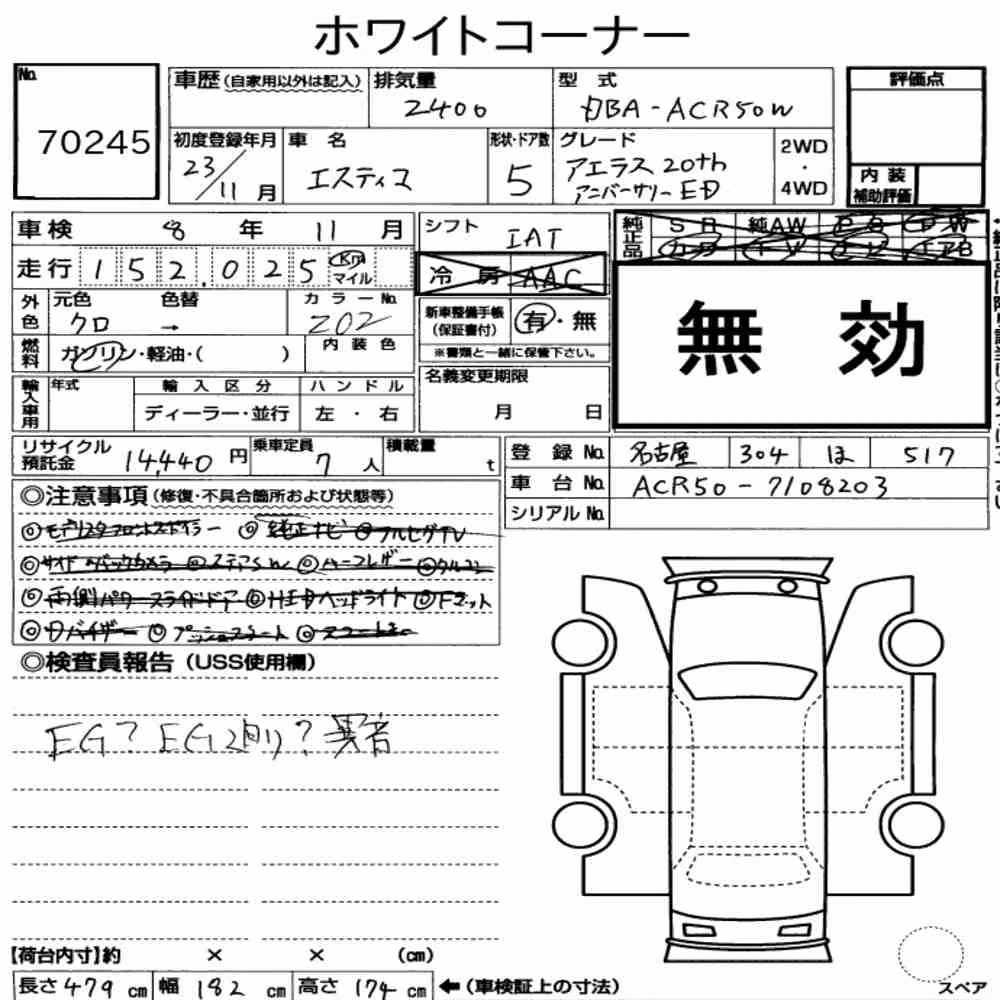 ホワイトコーナー
No. 70245
車歴 (自家用以外は記入)
排気量 2400
型式 DBA-ACR50W
評価点
初度登録年月 23/11月
車名 エスティマ
形状・ドア数 5
グレード アエラス 20th アニバーサリーED
2WD・4WD
内装補助評価
車検 8年 11月
シフト IAT
純正品 SR 純AW PS PW
カワ TV ナビ エアB
走行 152,025 Km マイル
冷房 AAC
外色 元色 クロ 色替 → カラーNo. 202
新車整備手帳(保証書付) 有・無
※書類と一緒に保管下さい。
無効
燃料 ガソリン・軽油・( ) 内装色
名義変更期限 月 日
輸入車用 年式 輸入区分 ハンドル
ディーラー・並行 左・右
リサイクル預託金 14,440円
乗車定員 7人
積載量 t
登録No. 名古屋 304 ほ 517
車台No. ACR50-7108203
シリアルNo.
◎注意事項(修復・不具合箇所および状態等)
◎モデリスタフロントスポイラー ◎純正ナビ ◎フルセグTV
◎サイド バックカメラ ◎ステアSW ◎ハーフレザー ◎クルコン
◎両側パワースライドドア ◎HIDヘッドライト ◎Fマット
◎Dバイザー ◎プッシュスタート ◎スマートキー
◎検査員報告(USS使用欄)
EG? EG廻り?異音
【荷台内寸】約 × × (cm)
長さ 479 cm 幅 182 cm 高さ 174 cm ←(車検証上の寸法)
スペア